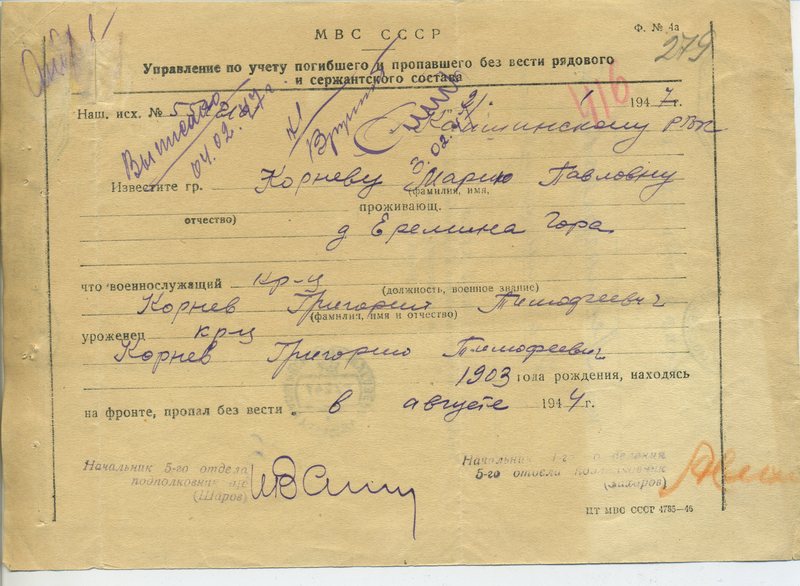 МВС СССР
Ф. № 4а
279
Управление по учету погибшего и пропавшего без вести рядового
и сержантского состава
Наш. исх. №
416
21. 1 1947г.
Выписано
04.02.47г
Кашинскому РВК
Известите гр. Корневу Марию Павловну
(фамилия, имя,
отчество)
проживающ.
д Еремина Гора
что военнослужащий кр-ц
(должность, военное звание)
Корнев Григорий Тимофеевич
(фамилия, имя и отчество)
уроженец кр-ц
Корнев Григорию Тимофеевич
1903 года рождения, находясь
на фронте, пропал без вести в августе 1944 г.
Начальник 5-го отдела
подполковник
(Шаров)
Начальник 1-го отделения
5-го отдела подполковник
(Захаров)
ЦТ МВС СССР 4785—46